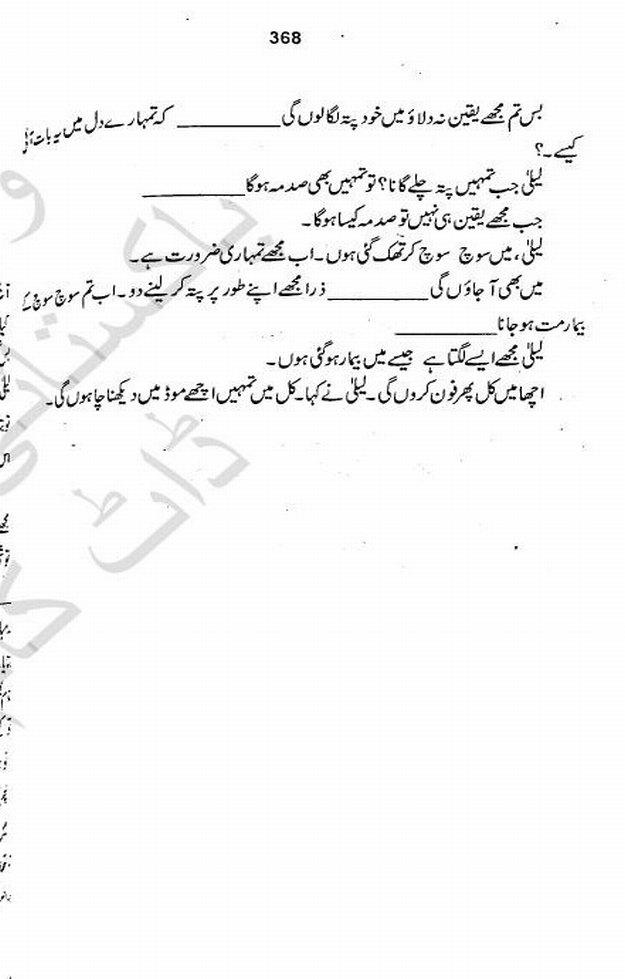 368
بس تم مجھے یقین نہ دلاؤ میں خود پتہ لگا لوں گی __________ کہ تمہارے دل میں یہ بات آئی
کیسے ۔؟
لیلیٰ جب تمہیں پتہ چلے گا نا؟ تو تمہیں بھی صدمہ ہوگا __________
جب مجھے یقین ہی نہیں تو صدمہ کیسا ہوگا ۔
لیلیٰ ، میں سوچ سوچ کر تھک گئی ہوں ۔ اب مجھے تمہاری ضرورت ہے ۔
میں بھی آ جاؤں گی __________ ذرا مجھے اپنے طور پر پتہ کر لینے دو ۔ اب تم سوچ سوچ کے
بیمار مت ہو جانا __________
لیلیٰ مجھے ایسے لگتا ہے جیسے میں بیمار ہوگئی ہوں ۔
اچھا میں کل پھر فون کروں گی ۔ لیلیٰ نے کہا۔ کل میں تمہیں اچھے موڈ میں دیکھنا چاہوں گی ۔